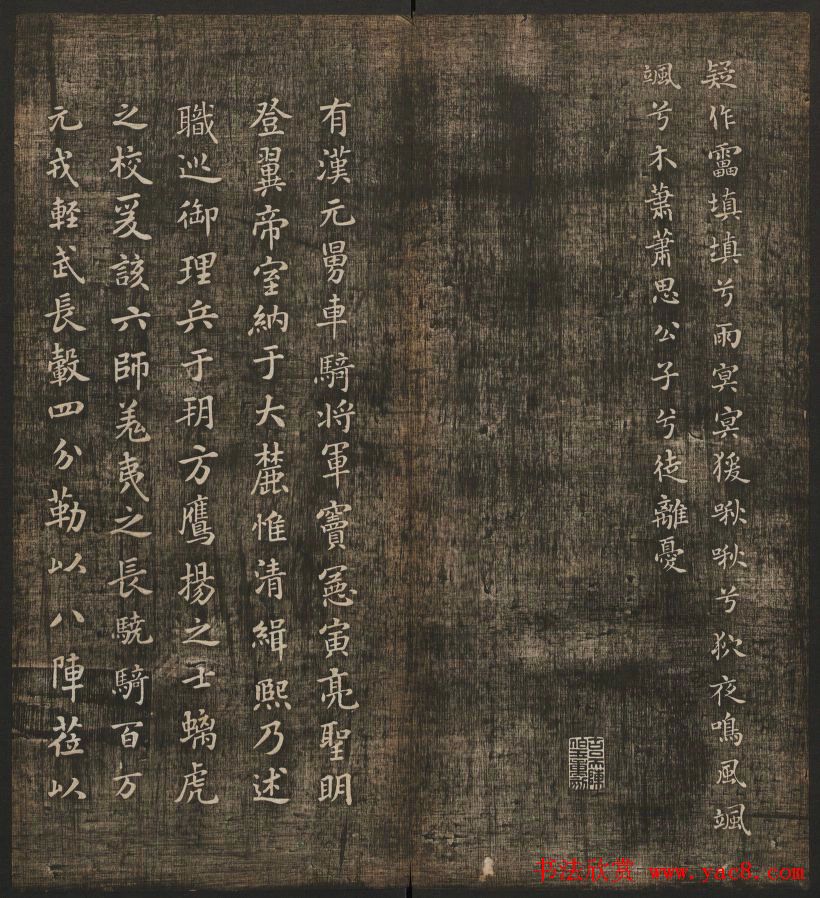 疑作靁填填兮雨冥冥猨啾啾兮狖夜鳴風颯
颯兮木蕭蕭思公子兮徒離憂
有漢元舅車騎将軍竇憲寅亮聖明
登翼帝室納于大麓惟清緝熙乃述
職巡御理兵于朔方鷹揚之士螭虎
之校爰該六師羌夷之長驍騎百万
元戎輕武長轂四分勒以八陣莅以
书法欣赏 www.yac8.com